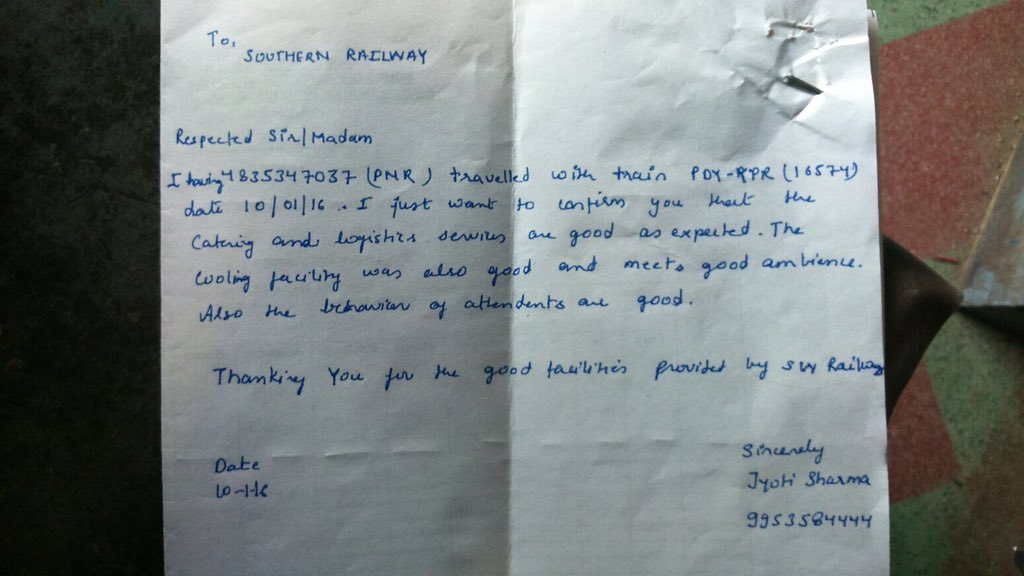 To,
SOUTHERN RAILWAY
Respected Sir/Madam
I having 4835347037 (PNR) travelled with train PDY-RPR (16574)
date 10/01/16. I just want to confirm you that the
Catering and logistics services are good as expected. The
Cooling facility was also good and meets good ambience.
Also the behaviour of attendents are good.
Thanking You for the good facilities provided by SW Railway
Date
10-1-16
Sincerely
Jyoti Sharma
9953584444